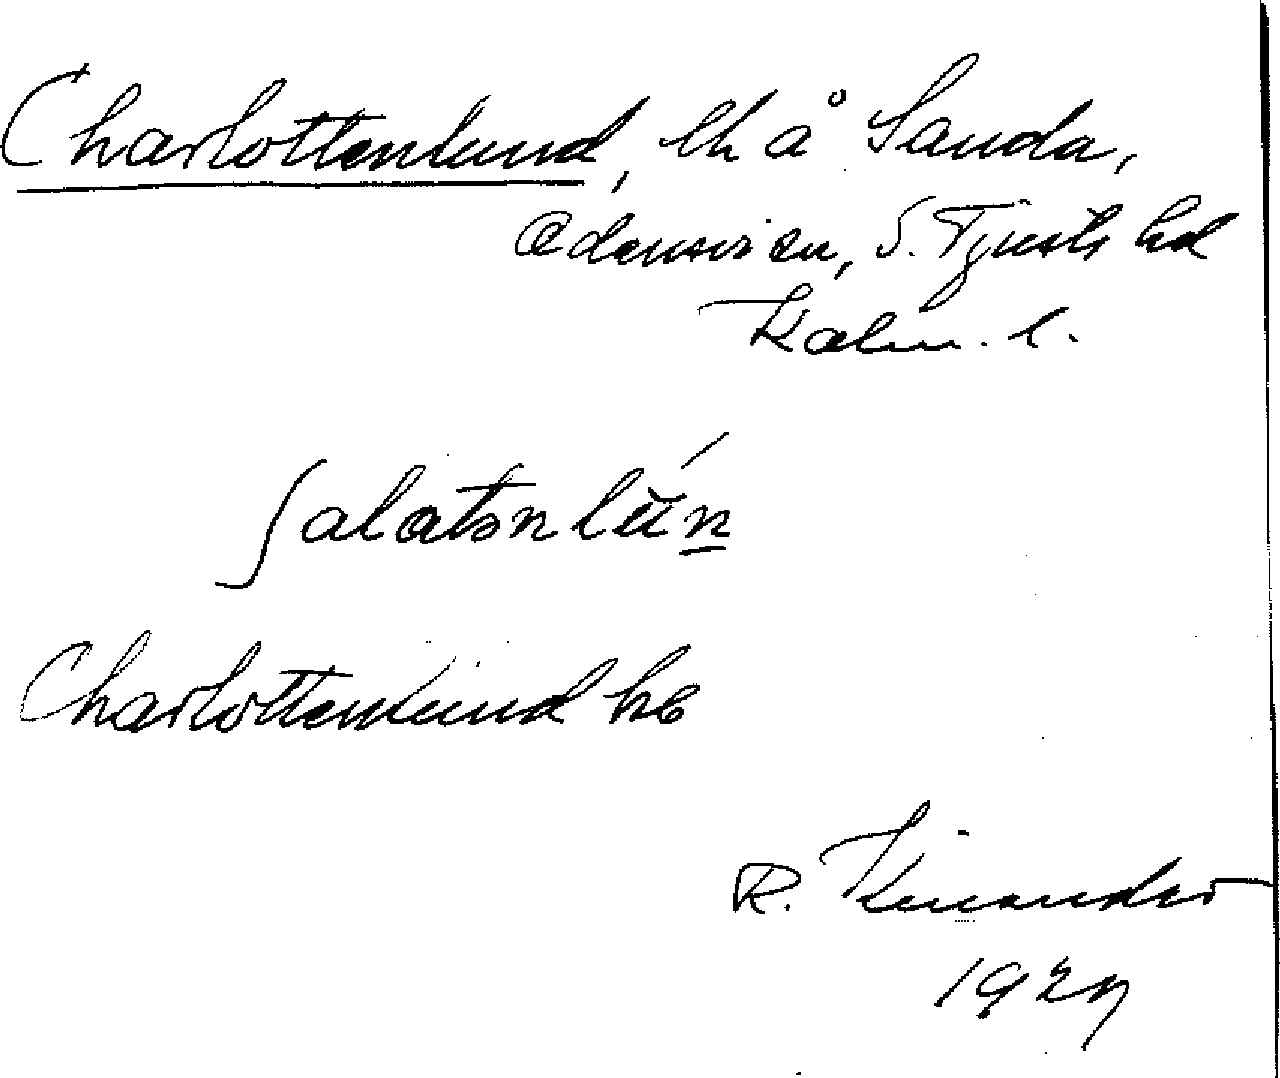 Charlottenlund, lh å Sanda,
Odensvi sn, S. Tjusts hd
Kalm. l.
ʃalatənlŭ́n̲
Charlottenlund hb
R. Kinander
1927